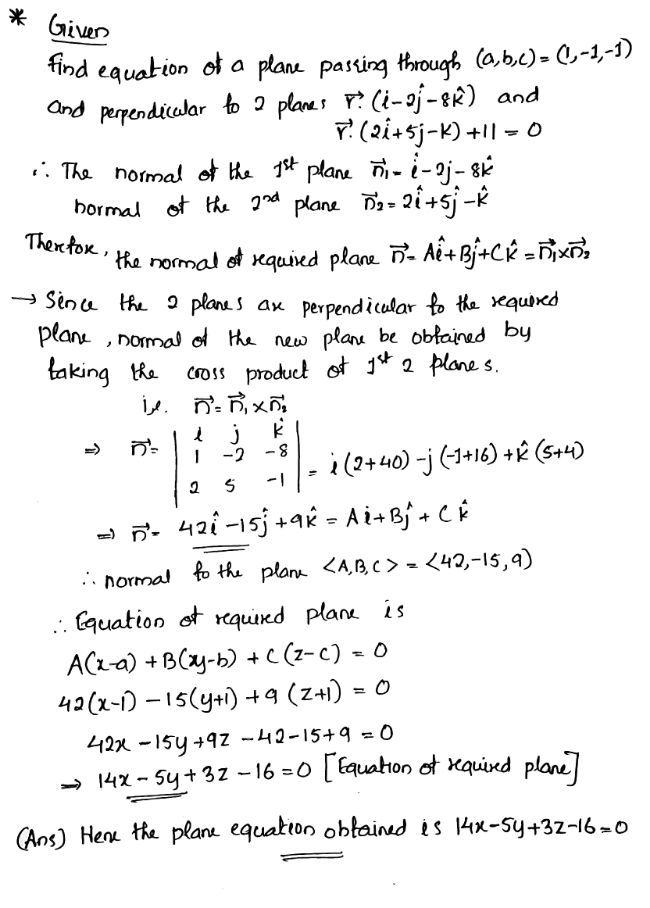 * Given
Find equation of a plane passing through (a,b,c) = (1,-1,-1)
and perpendicular to 2 planes r⃗.(i-2ĵ-8k̂) and
r⃗.(2î+5ĵ-k)+11=0
∴ The normal of the 1st plane n⃗₁= î-2j-8k̂
normal of the 2nd plane n⃗₂=2î+5ĵ-k̂
Therefore, the normal of required plane n⃗= Aî+Bĵ+Ck̂ = n⃗₁xn⃗₂
→ Since the 2 planes are perpendicular to the required
plane, normal of the new plane be obtained by
taking the cross product of 1st 2 planes.
i.e. n⃗=n⃗₁xn⃗₂
⇒ n⃗= | i j k̂ |
| 1 -2 -8 | = i(2+40)-j(-1+16)+k̂(5+4)
| 2 5 -1 |
⇒ n⃗= 42î-15ĵ+9k̂ = Ai+Bĵ+Ck̂
∴ normal to the plane <A,B,C> = <42,-15,9)
∴ Equation of required plane is
A(x-a)+B(xy-b)+C(z-c) = 0
42(x-1)-15(y+1)+9(z+1) = 0
42x-15y+9z-42-15+9=0
⇒ 14x-5y+3z-16=0 [Equation of required plane]
(Ans) Here the plane equation obtained is 14x-5y+3z-16=0